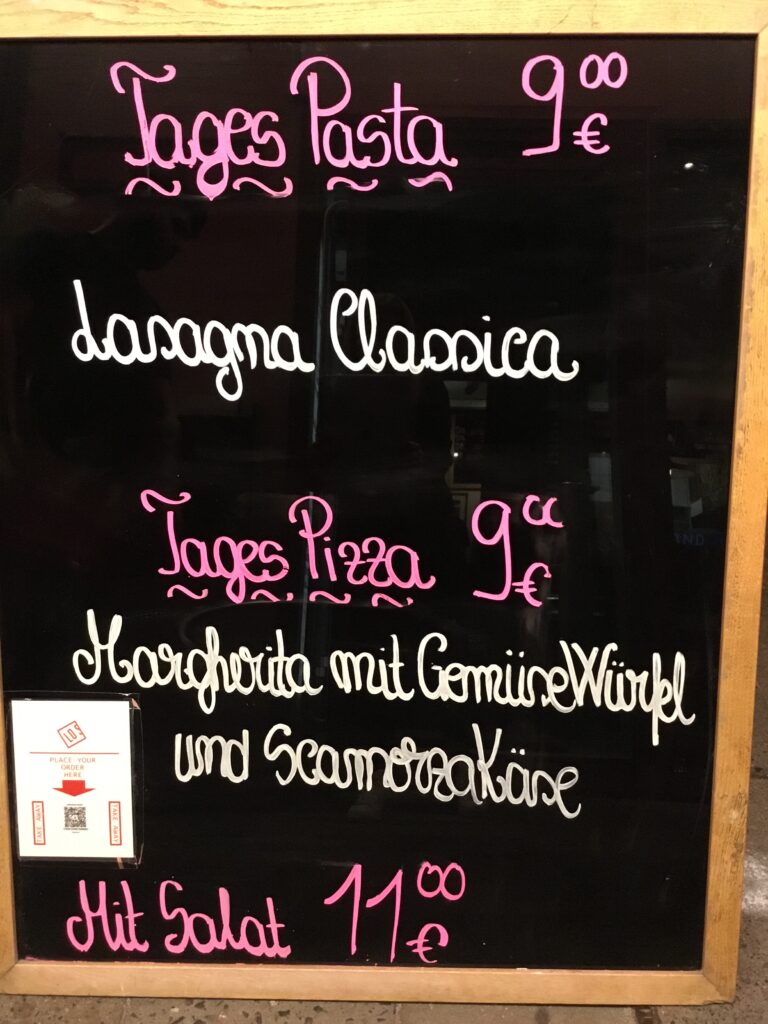 Tages Pasta 9 00 €
Lasagna Classica
Tages Pizza 9 00 €
Margherita mit GemüseWürfel
und ScamorzaKäse
PLACE YOUR
ORDER
HERE
TAKE AWAY
TAKE AWAY
Mit Salat 11 00 €